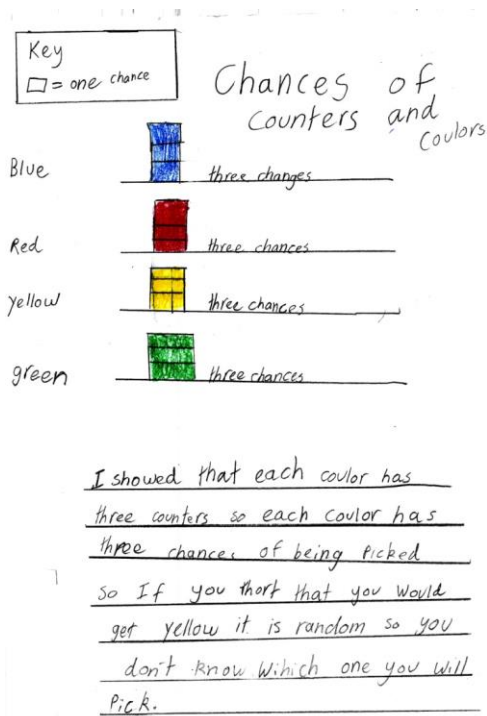 Key
= one chance
Chances of
counters and
coulors
Blue three changes
Red three chances
yellow three chances
green three chances
I showed that each coulor has
three counters so each coulor has
three chances of being picked
so If you thort that you would
get yellow it is random so you
don't know wihich one you will
Pick.